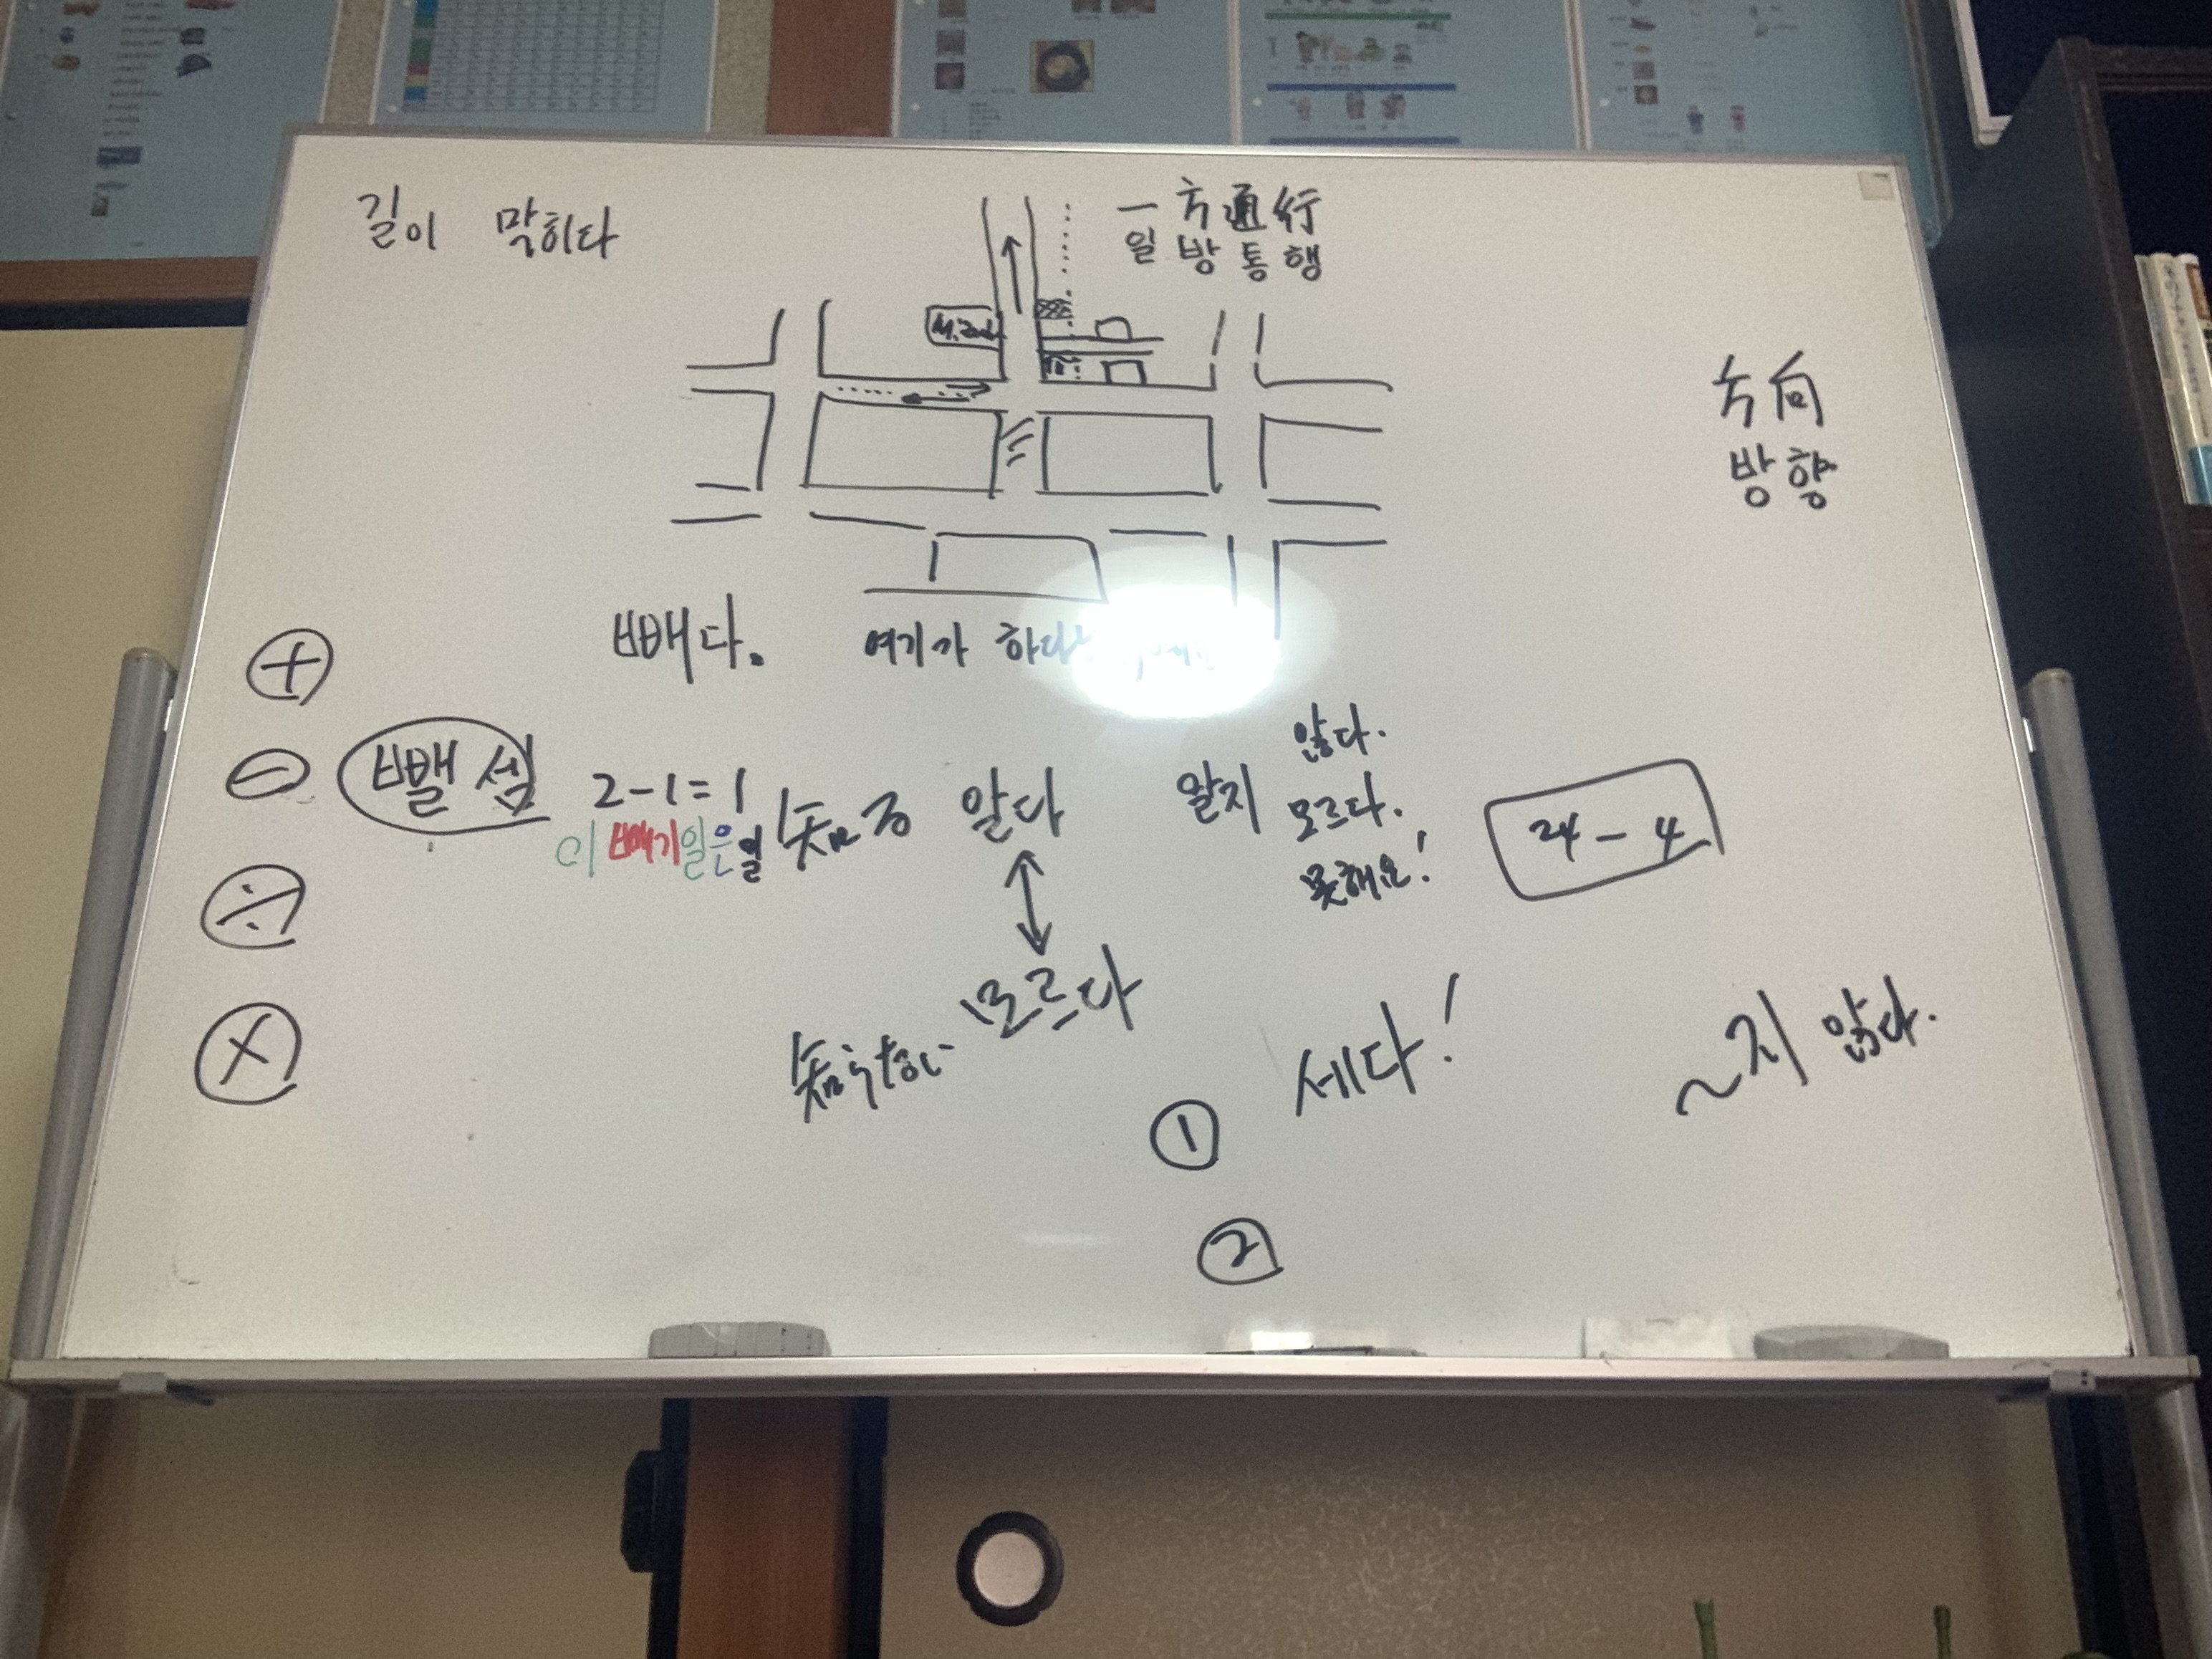 길이 막히다
一方通行
일방통행
方向
방향
빼다.
여기가
+
−
뺄셈
2-1=1
이 빼기 일은 일
知る 알다
알지 않다.
모르다.
못해요!
24-4
÷
×
모르다
세다!
~지 않다.
①
②